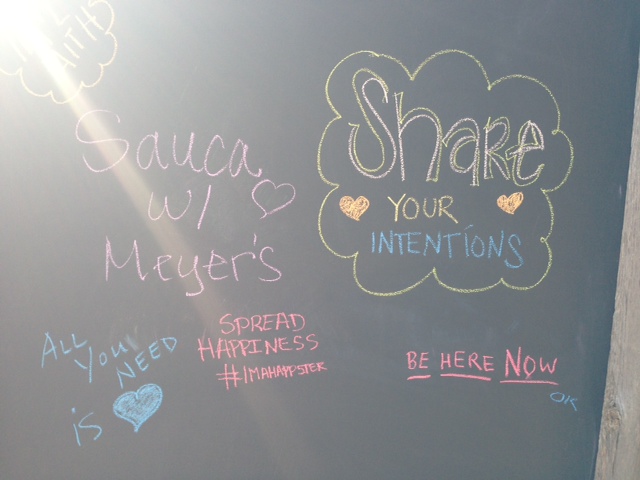 FAITHS
Sauca
w/
Meyer's
Share
YOUR
INTENTIONS
ALL
You NEED
is
SPREAD
HAPPINESS
#IMAHAPPSTER
BE HERE NOW
OK